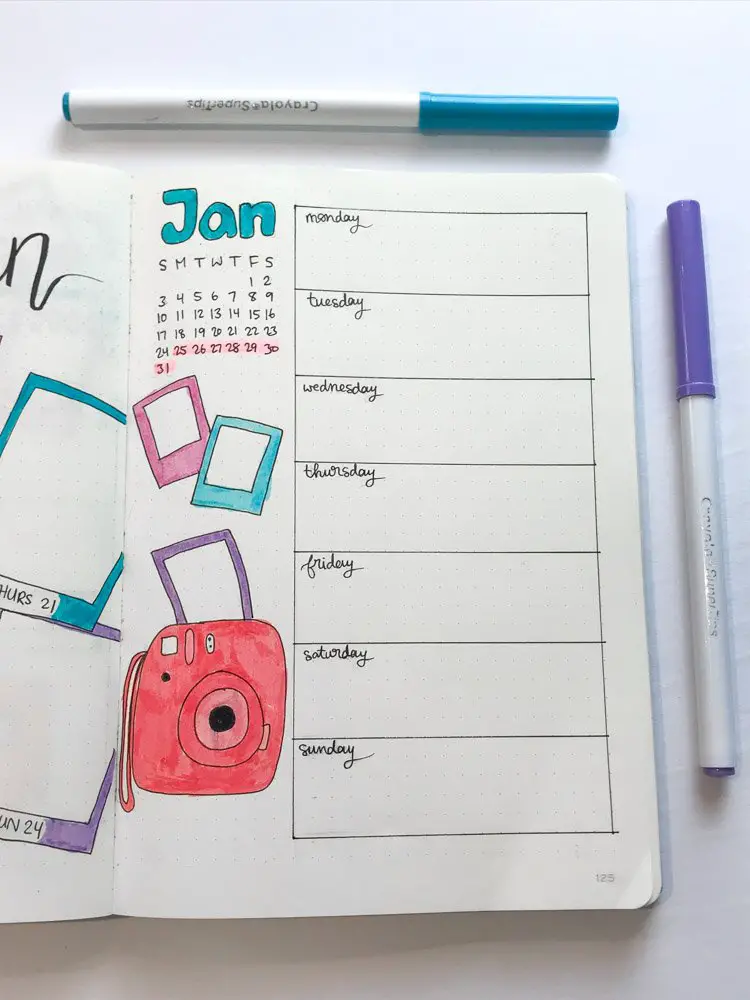 Crayola SuperTips
Jan
S M T W T F S
1 2
3 4 5 6 7 8 9
10 11 12 13 14 15 16
17 18 19 20 21 22 23
24 25 26 27 28 29 30
31
HURS 21
UN 24
monday
tuesday
wednesday
thursday
friday
saturday
sunday
125
Crayola SuperTips